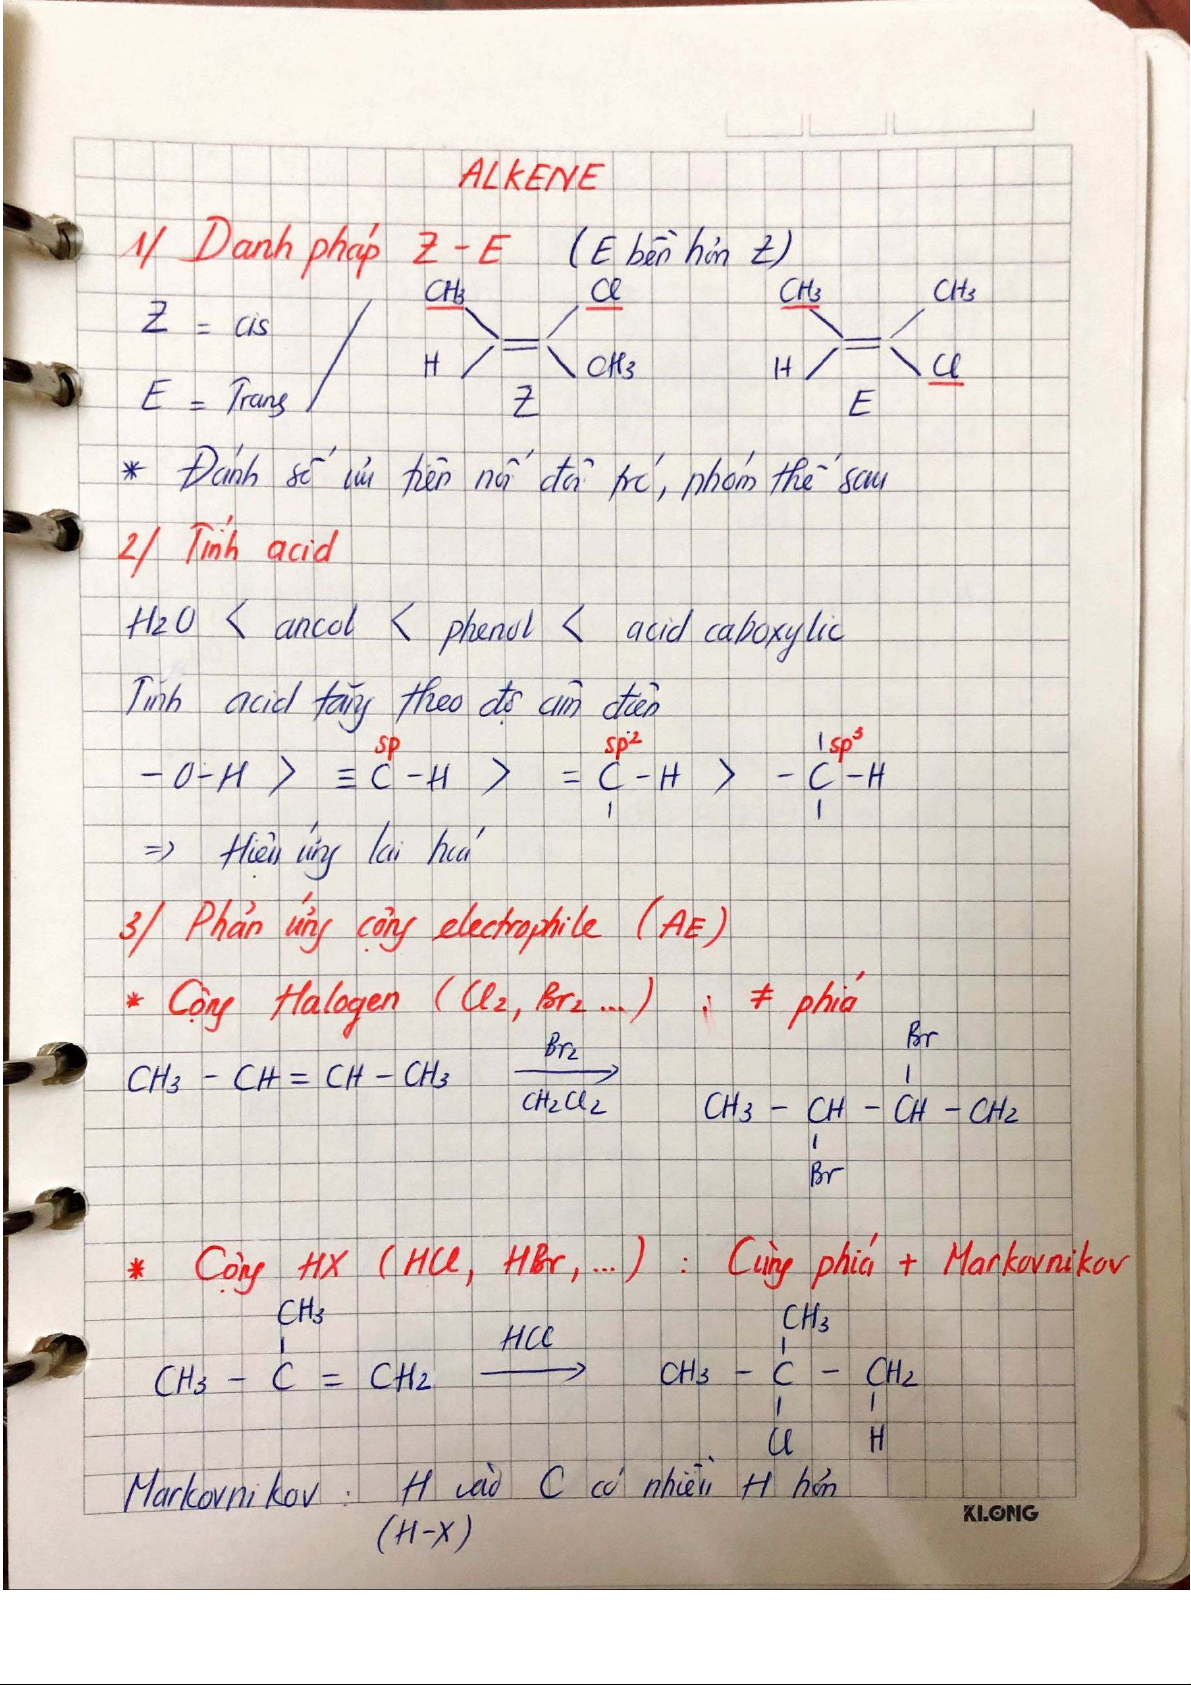 ALKENE
1/ Danh pháp Z - E (E bền hơn Z)
CH3 Cl CH3 CH3
Z = cis
H CH3 H Cl
E = Trans Z E
* Đánh số ưu tiên nối đôi trc, nhóm thế sau
2/ Tính acid
H2O < ancol < phenol < acid caboxylic
Tính acid tăng theo độ âm điện
sp sp2 sp3
- O - H > ≡ C - H > = C - H > - C - H
=> Hiệu ứng lai hoá
3/ Phản ứng cộng electrophile (AE)
* Cộng Halogen (Cl2, Br2 ...) ; ≠ phía
Br2 Br
CH3 - CH = CH - CH3
CH2Cl2 CH3 - CH - CH - CH2
Br
* Cộng HX (HCl, HBr, ...) : Cùng phía + Markovnikov
CH3 HCl CH3
CH3 - C = CH2 CH3 - C - CH2
Cl H
Markovnikov : H vào C có nhiều H hơn
(H-X)
KLONG